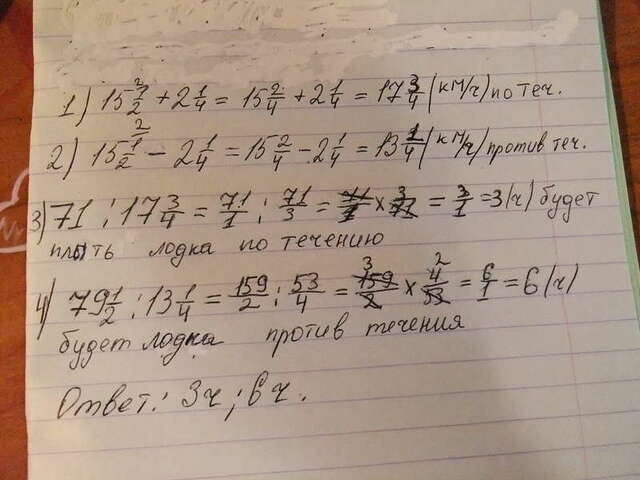 1) 15 1/2 + 2 1/4 = 15 2/4 + 2 1/4 = 17 3/4 (км/ч) по теч.
2) 15 1/2 - 2 1/4 = 15 2/4 - 2 1/4 = 13 1/4 (км/ч) против теч.
3) 71 : 17 3/4 = 71/1 : 71/3 = 71/1 × 3/71 = 3/1 = 3 (ч) будет
плыть лодка по течению
4) 79 1/2 : 13 1/4 = 159/2 : 53/4 = 159/2 × 4/53 = 6/1 = 6 (ч)
будет лодка против течения
Ответ: 3 ч ; 6 ч.